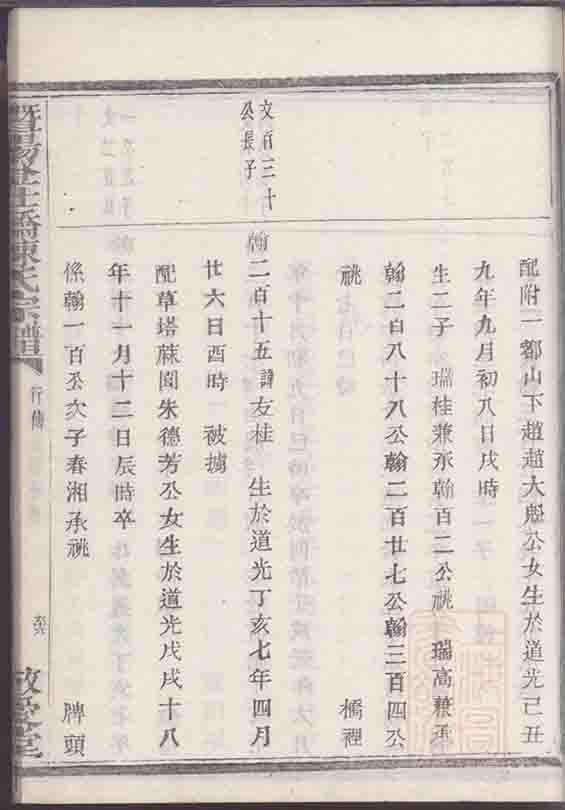 配附一都山下趙趙大勲公女生於道光己丑
九年九月初八日戌時
生二子 瑞桂兼承翰百二公祧 瑞高兼承
翰二百八十八公翰二百廿七公翰三百四公
祧 橋裡
文百三十
公長子
翰二百十五諱友桂 生於道光丁亥七年四月
廿六日酉時一被擄
配草塔蔴園朱德芳公女生於道光戊戌十八
年十一月十二日辰時卒
係翰一百公次子春湘承祧 牌頭
暨陽 橋陳氏宗譜
行傳
敬愛堂